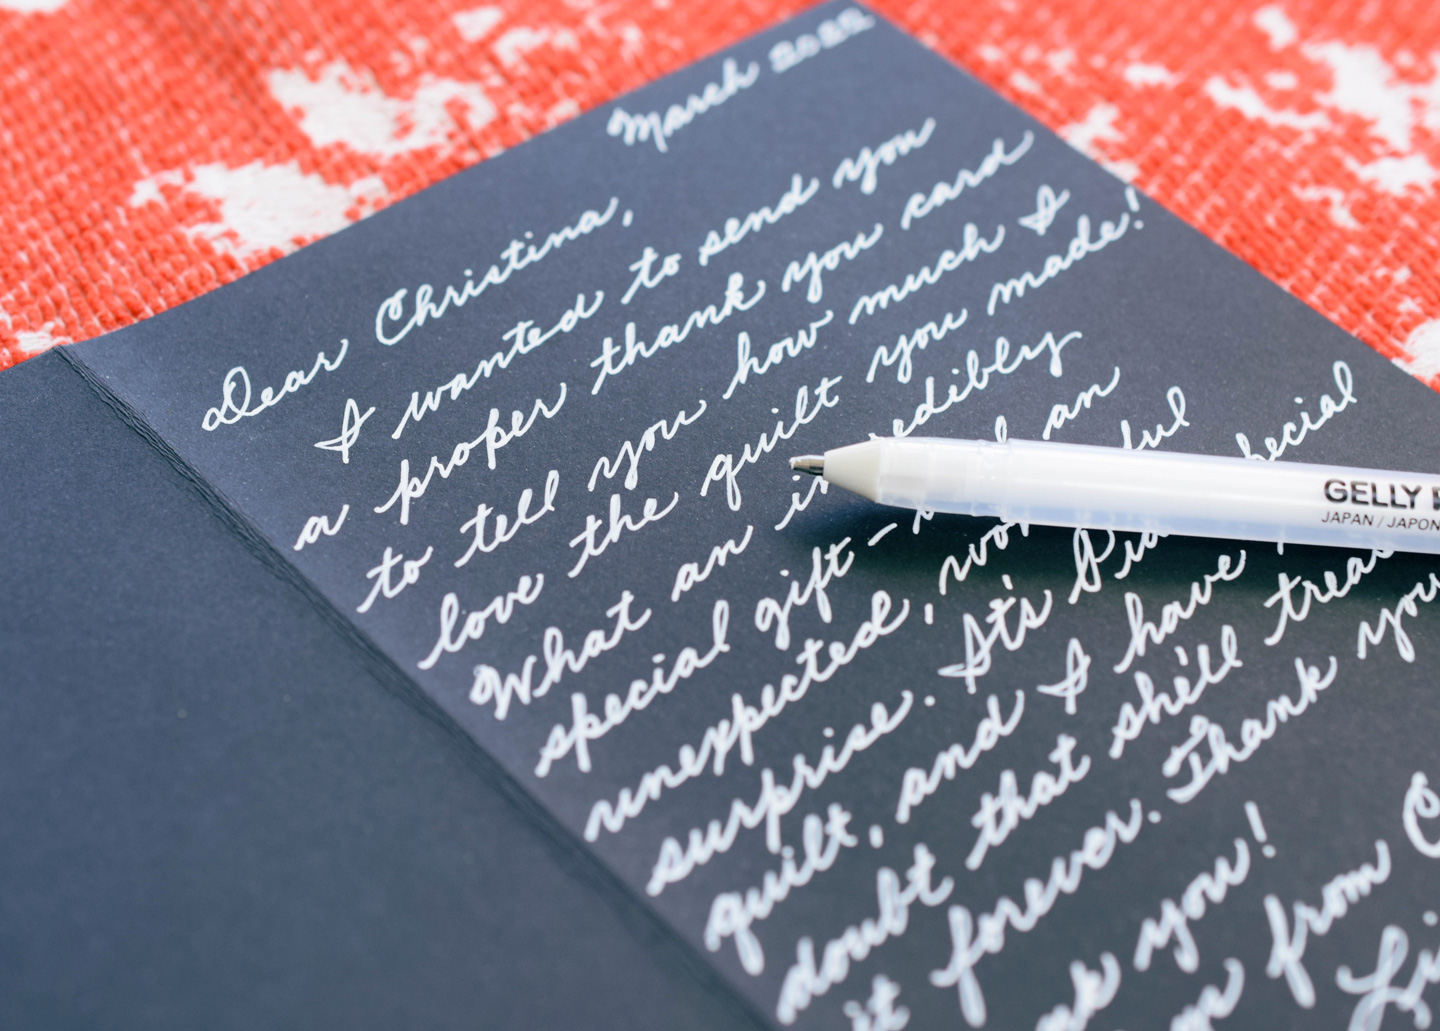 March 2022
Dear Christina,
I wanted to send you
a proper thank you card
to tell you how much I
love the quilt you made!
What an incredibly
special gift - an
unexpected,
surprise. It's special
quilt, and I have
doubt that she'll
it forever. Thank you
you!
from
GELLY
JAPAN / JAPON